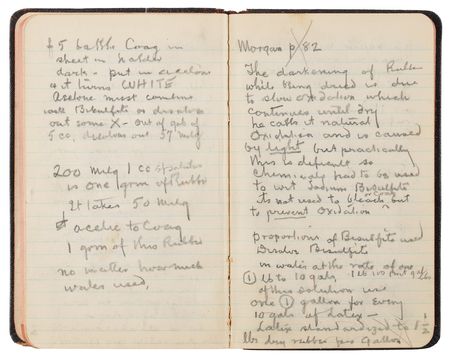 $5 bottle Coag in
sheet in holder
dark - put in acetone
& it turns WHITE
Acetone must combine
with Bisulfite or dissolves
out some X - out of gel of
5 cc, dissolves out 37 milg
200 milg 1 cc
is one 1 grm of Rubber
It takes 50 milg
acetic to Coag
1 grm of this Rubber
no matter how much
water used.
Morgan p 82
The darkening of Rubber
while being dried is due
to slow oxidation which
continues until dry
he calls it natural
oxidation and is caused
by light but practically
this is difficult so
chemicals had to be used
to wit Sodium Bisulfite
its not used to bleach or Coag but
to prevent oxidation
proportions of Bisulfite used
Dissolve Bisulfite
in water at the rate of one
① lb to 10 gals
of this solution use
one ① gallon for every
10 gals of Latex -
Latex standardized to 1 1/2
lbs dry rubber per Gallon